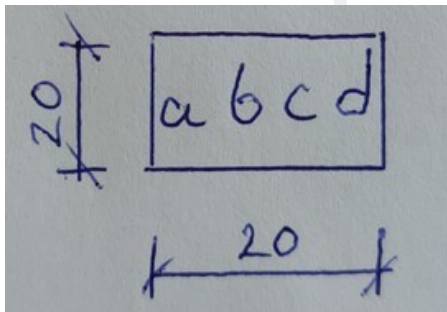 20
a b c d
20